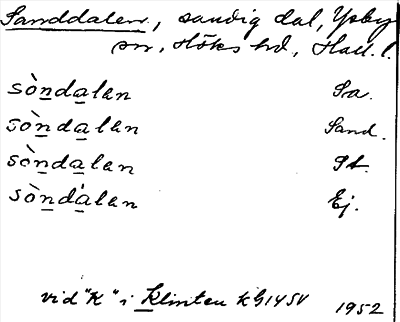 Sanddalen, sandig dal, Ysby
sn, Höks hd, Hall. l.
sòndalen Sa.
sòndalen Sand.
sòndalen St.
sòndálen Ej.
vid "K" i Klinten kg 14 SV 1952